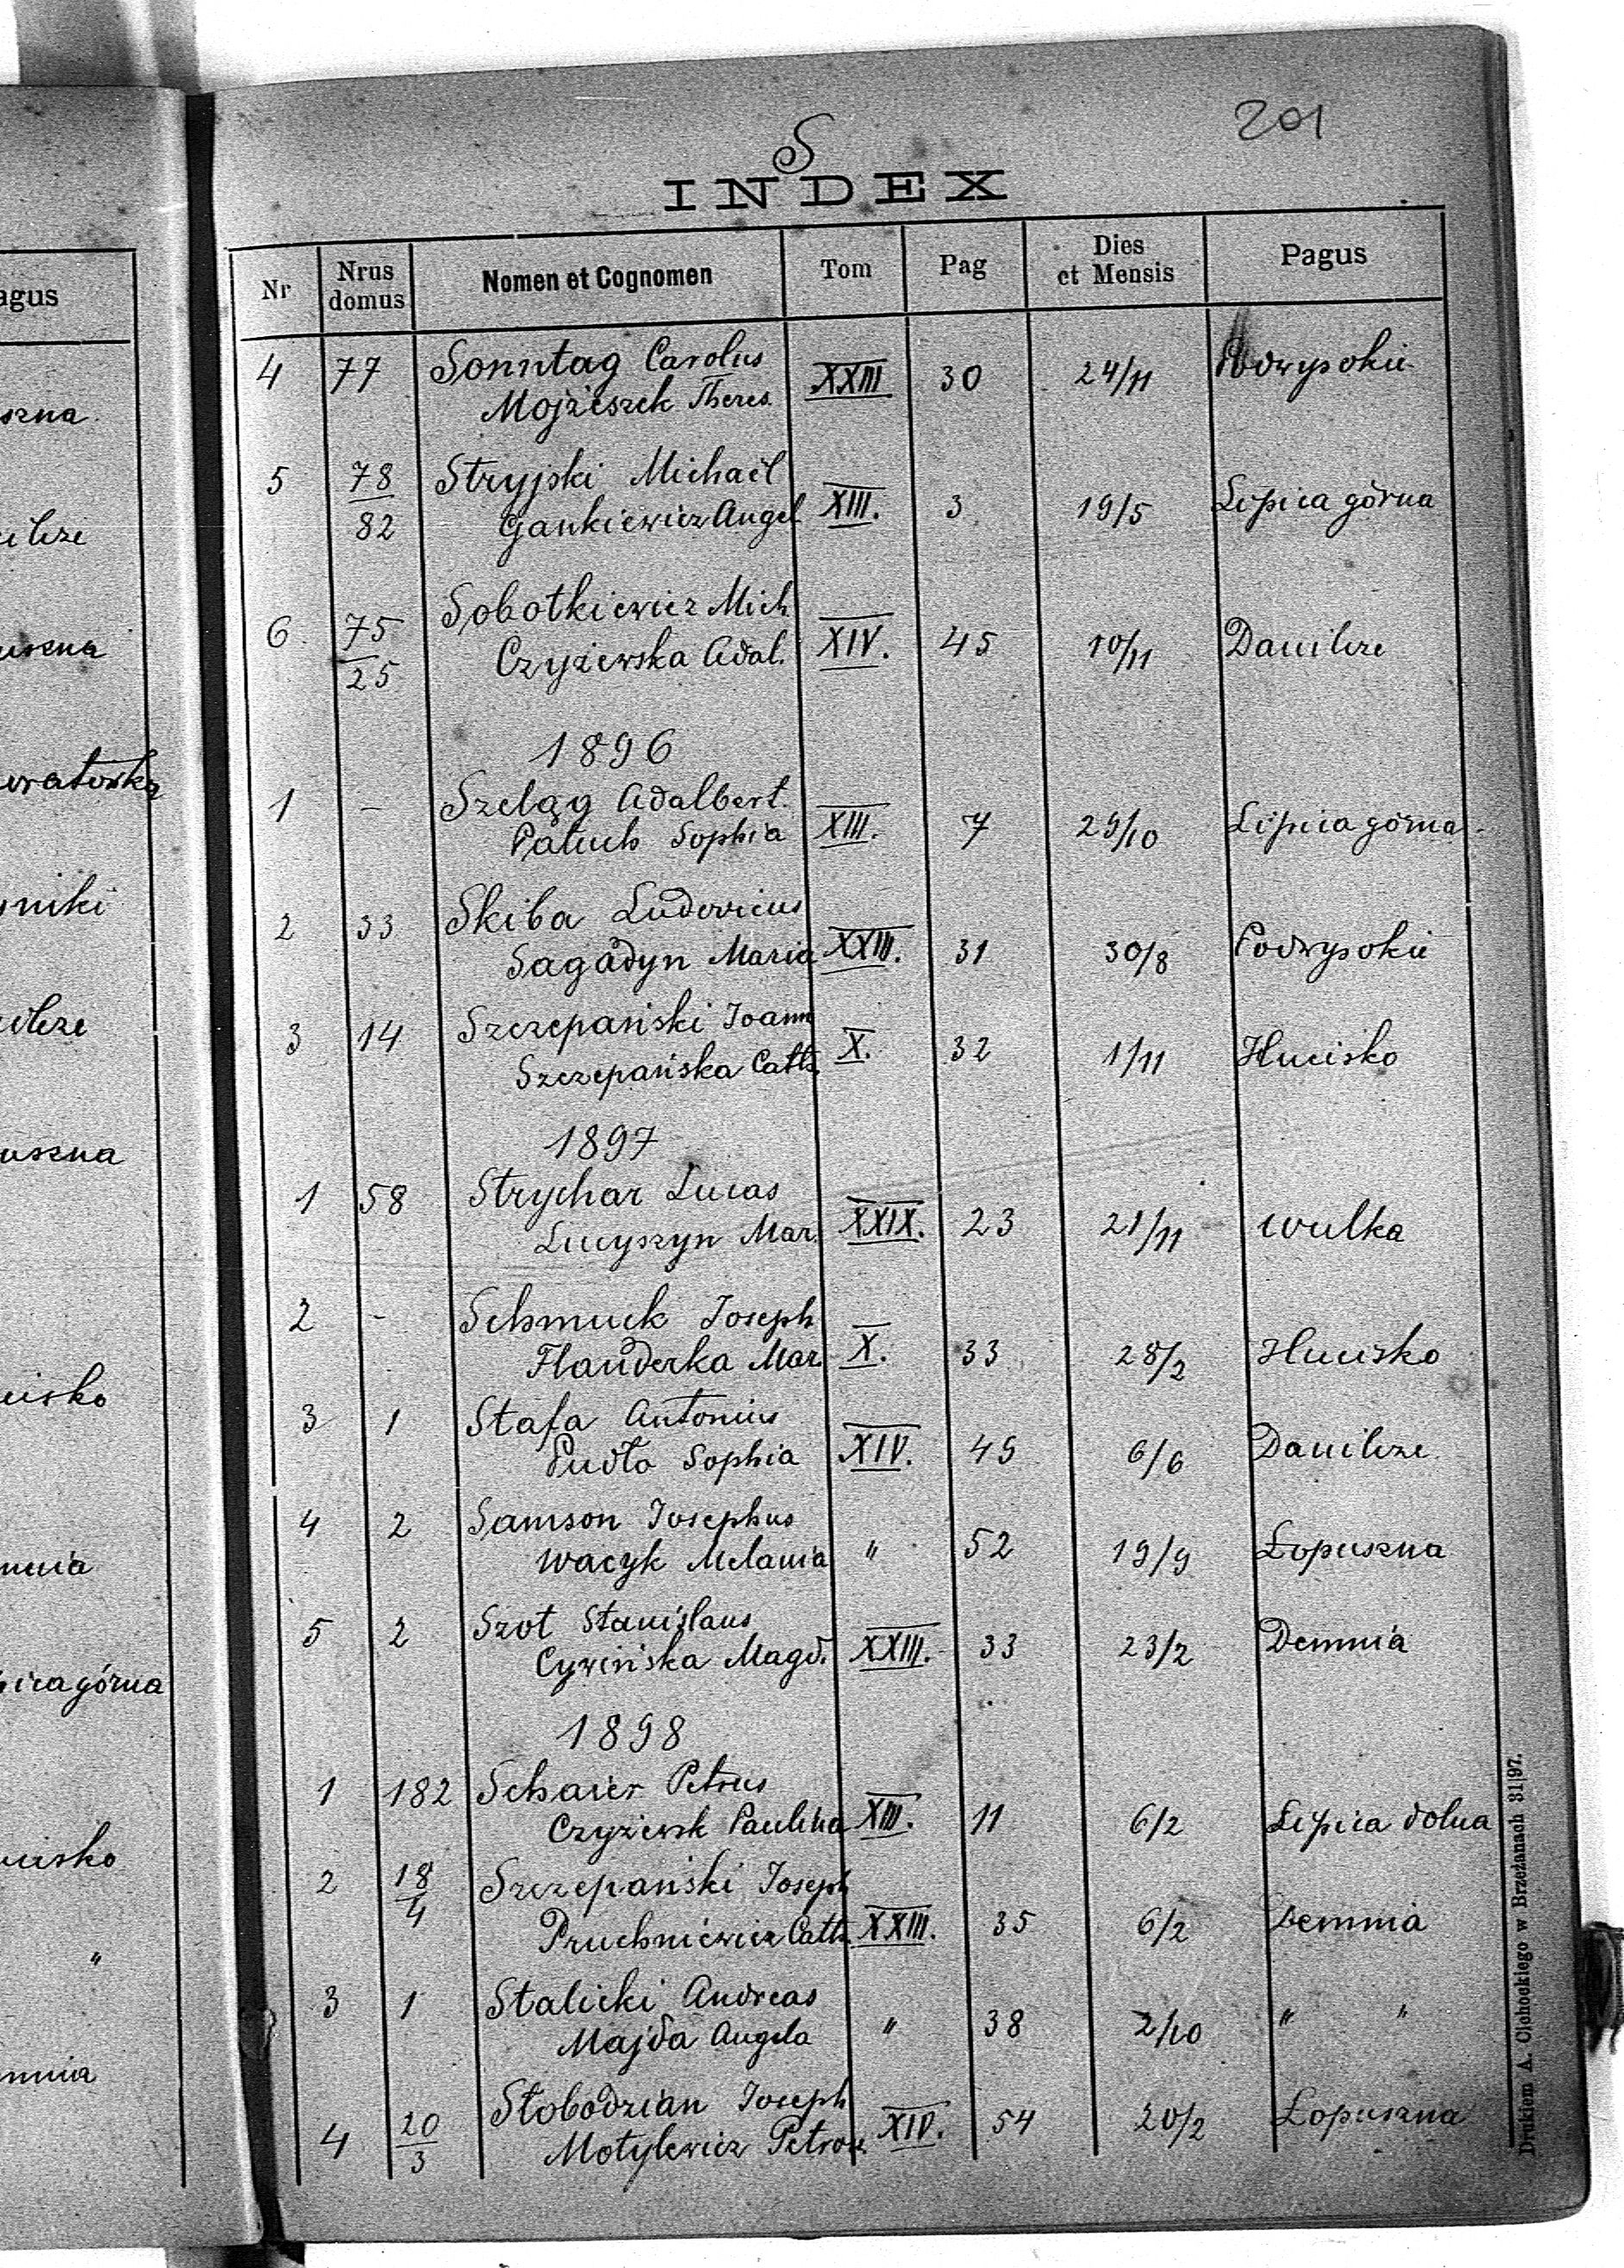 201
S
INDEX
Nr Nrus domus Nomen et Cognomen Tom Pag Dies et Mensis Pagus
4 77 Sonntag Carolus XXIII 30 24/11 Podwysokie
Mojżeszek Theres.
5 78/82 Stryjski Michaël XIII. 3 19/5 Lipica górna
Gankiewicz Angel.
6 75/25 Sobotkiewicz Mich XIV. 45 10/11 Danilcze
Czyżewska Adal.
1896
1 – Szeląg Adalbert. XIII. 7 29/10 Lipica górna
Paluch Sophia
2 33 Skiba Ludovicus XXIII. 31 30/8 Podwysokie
Sagadyn Maria
3 14 Szczepański Joann X. 32 1/11 Hucisko
Szczepańska Cath.
1897
1 58 Strychar Lucas XXIX. 23 21/11 Wulka
Lucyszyn Mar.
2 - Schmuck Joseph X. 33 28/2 Hucisko
Flanderka Mar.
3 1 Stafa Antonius XIV. 49 6/6 Danilcze
Pudło Sophia
4 2 Samson Josephus " 52 19/9 Łopuszna
Wacyk Melania
5 2 Szot Stanislaus XXIII. 33 23/2 Demnia
Cywińska Magd.
1898
1 182 Schaier Petrus XIII. 11 6/2 Lipica dolna
Czyżewsk Paulina
2 18/4 Szczepański Joseph XXIII. 35 6/2 Demnia
Pruchniewicz Cath.
3 1 Stalicki Andreas " 38 2/10 " "
Majda Angela
4 20/3 Słobodzian Joseph XIV. 54 20/2 Łopuszna
Motylewicz Petron.
Drukiem A. Olchockiego w Brzeżanach 31|97.
agus
szna
ilcze
uszna
niki
ilcze
uszna
cisko
mnia
ica górna
cisko
"
mnia